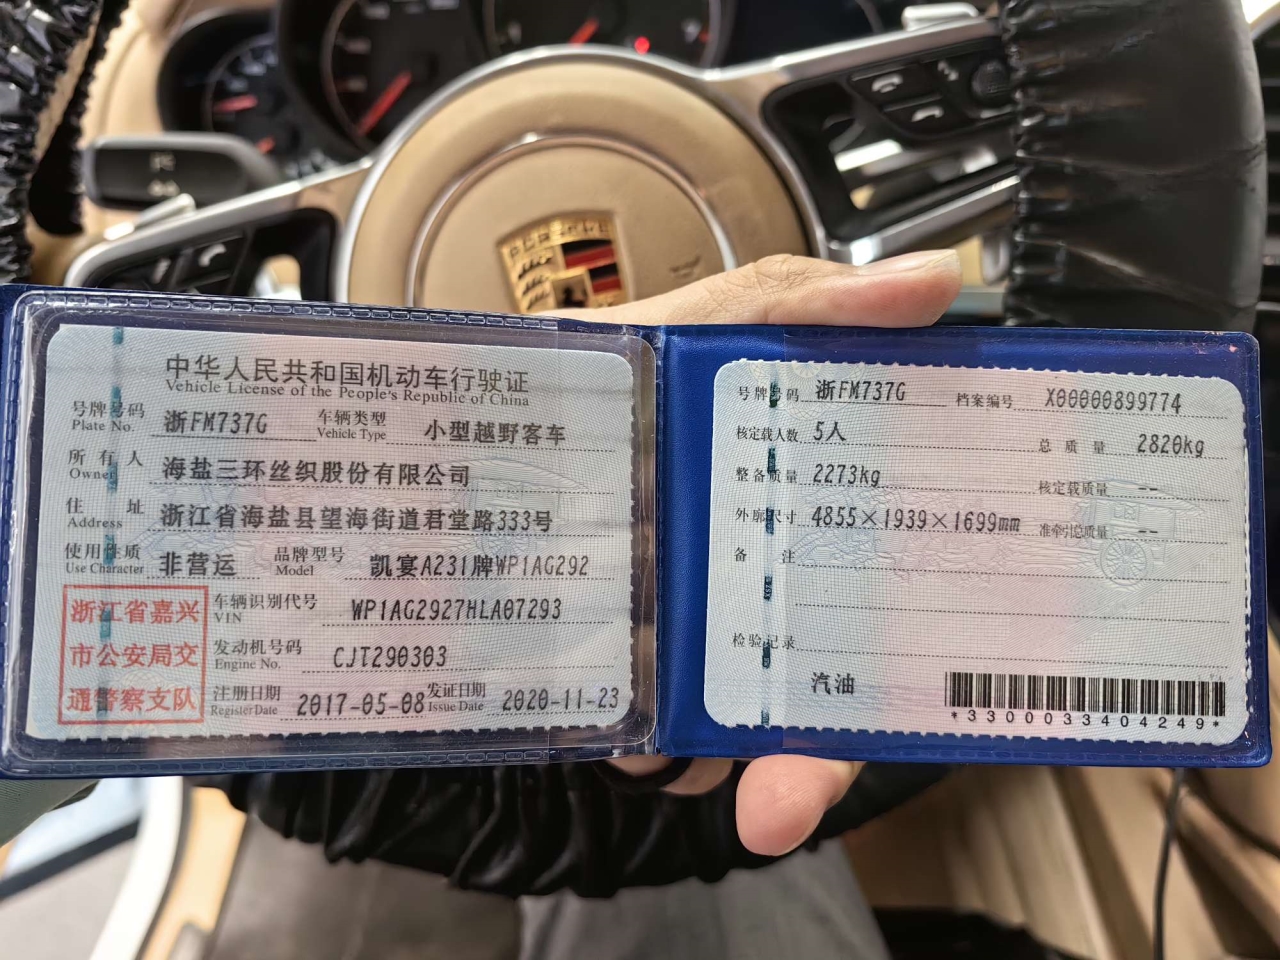 PORSCHE
中华人民共和国机动车行驶证
Vehicle License of the People's Republic of China
号牌号码 浙FM737G 车辆类型 小型越野客车
Plate No. Vehicle Type
所有人 海盐三环丝织股份有限公司
Owner
住址 浙江省海盐县望海街道君堂路333号
Address
使用性质 非营运 品牌型号 凯宴A231牌WP1AG292
Use Character Model
浙江省嘉兴
市公安局交
通警察支队
车辆识别代号 WP1AG2927HLA07293
VIN
发动机号码 CJT290303
Engine No.
注册日期 2017-05-08 发证日期 2020-11-23
Register Date Issue Date
号牌号码 浙FM737G 档案编号 X00000899774
核定载人数 5人 总质量 2820kg
整备质量 2273kg 核定载质量 --
外廓尺寸 4855×1939×1699mm 准牵引总质量 --
备注
检验记录
汽油
*3300033404249*